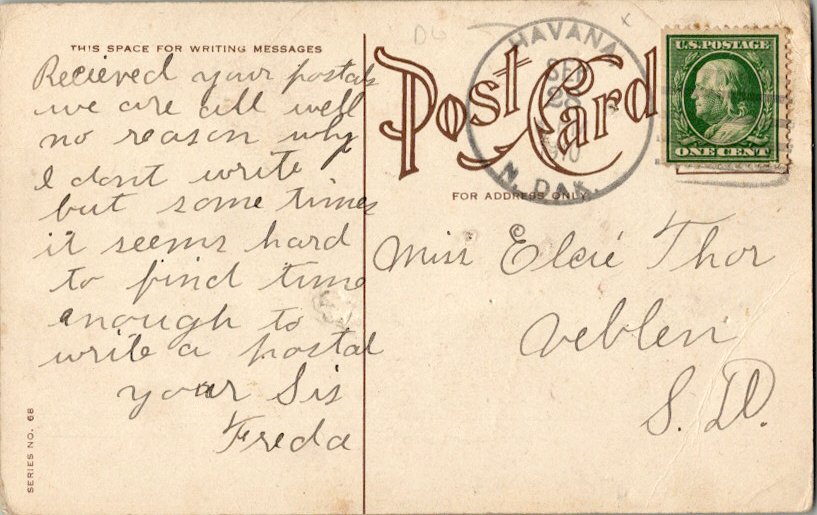 THIS SPACE FOR WRITING MESSAGES
Recieved your postals
we are all well
no reason why
I dont write
but some times
it seems hard
to find time
enough to
write a postal
your Sis
Freda
SERIES NO. 68
POST CARD
FOR ADDRESS ONLY.
HAVANA
SEP
N. DAK.
U.S. POSTAGE
ONE CENT
Miss Elsie Thor
Veblen
S. D.